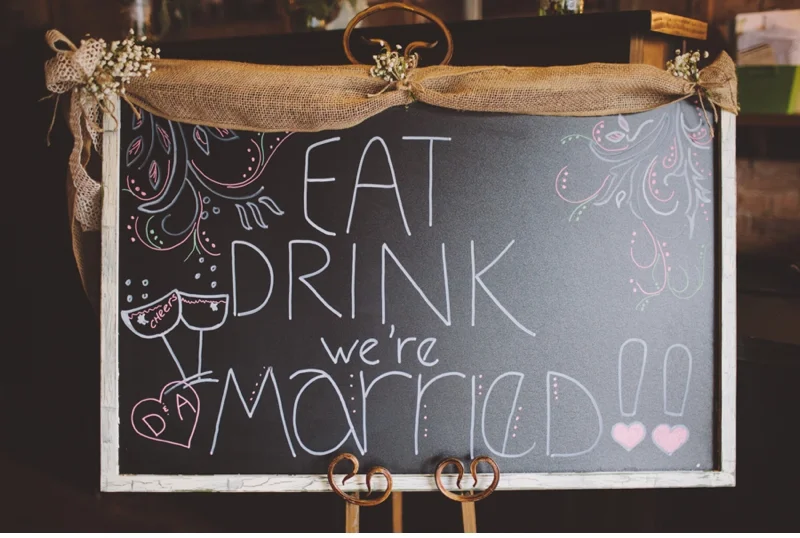 EAT
DRINK
we're
MarriED!!
CHEERS
D & A